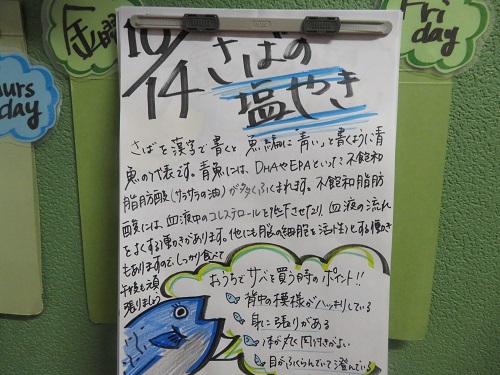 金曜
Fri
day
urs
day
10/14
さばの
塩やき
さばを漢字で書くと「魚編に青い」と書くように青
魚の代表です。青魚には、DHAやEPAといった不飽和
脂肪酸(サラサラの油)が多くふくまれます。不飽和脂肪
酸には、血液中のコレステロールを低下させたり、血液の流れ
をよくする働きがあります。他にも脳の細胞を活性化する働き
もありますので、しっかり食べて
午後も頑
張りましょう
おうちでサバを買う時のポイント!!
背中の模様がハッキリしている
身に張りがある
体が丸く肉付きがよい
目がふくらんでいて澄んでいる